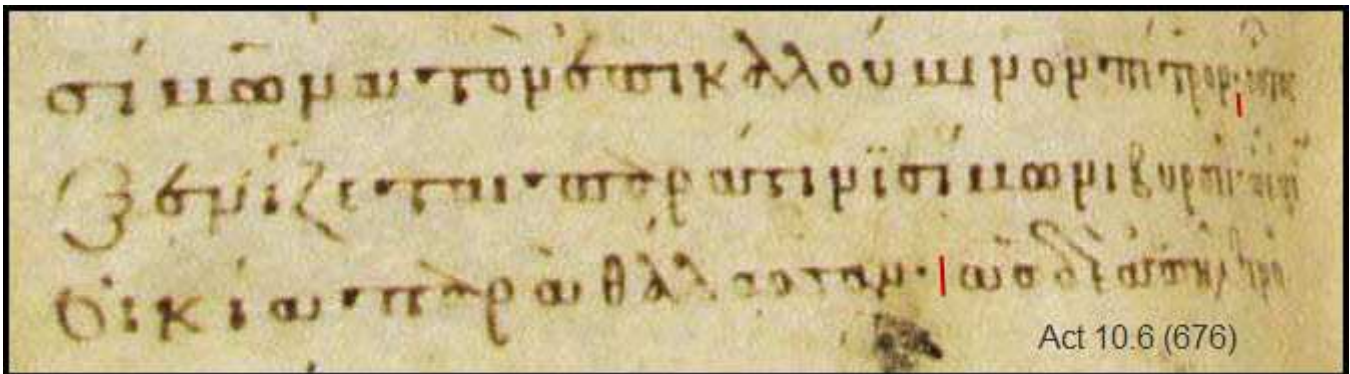 σίμωνα τὸν ἐπικαλούμενον πέτρον· οὗτος
ξενίζεται· παρά τινι σίμωνι βυρσεῖ·
οἰκία· παρὰ θάλασσαν· ὡς δὲ ἀπῆλθεν
Act 10.6 (676)